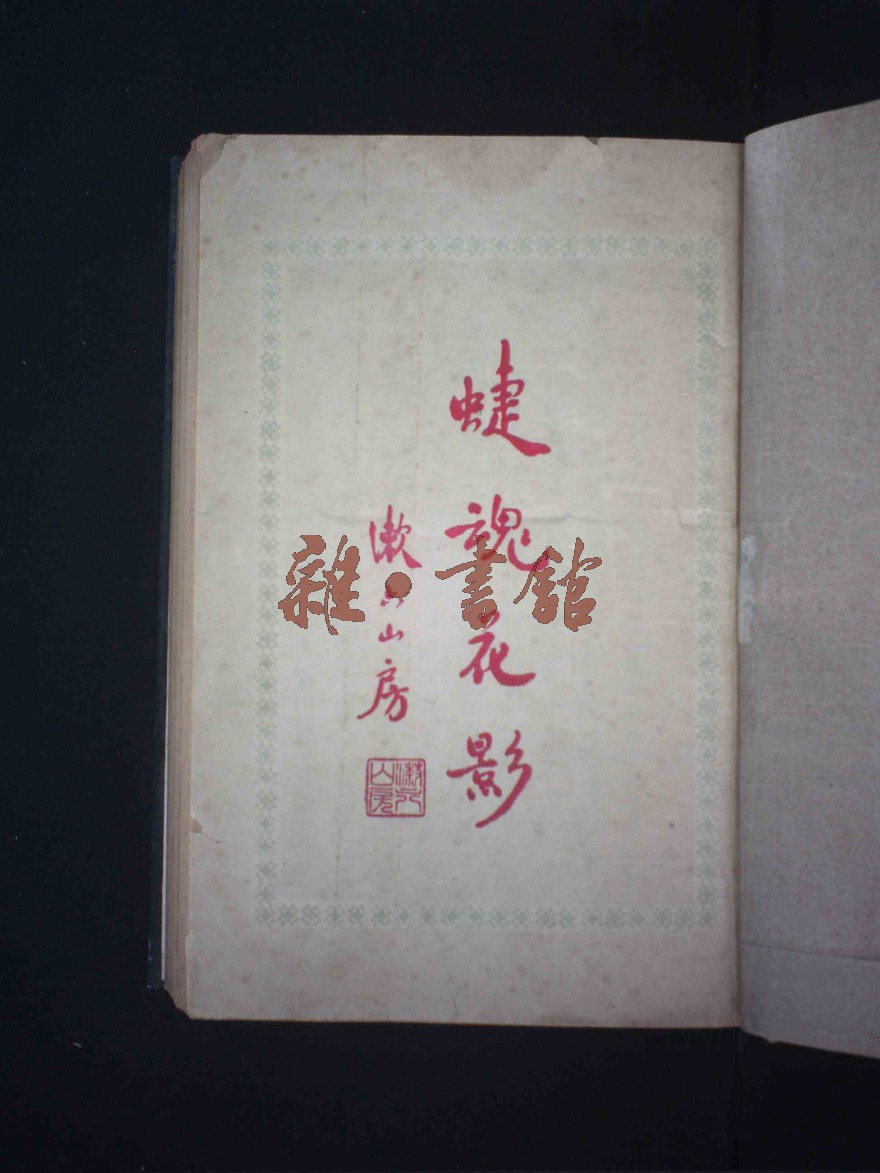 蜨魂花影
漱六山房
漱六山房
雜•書館